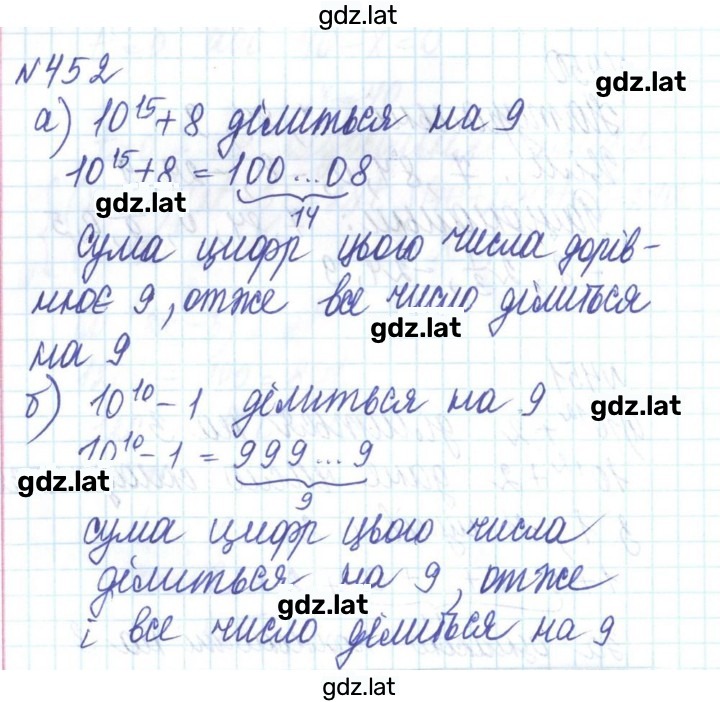 gdz.lat
№452
gdz.lat
а) 10¹⁵+8 ділиться на 9
10¹⁵+8 = 100...08
gdz.lat
14
Сума цифр цього числа дорів-
нює 9, отже все число ділиться
gdz.lat
на 9
б) 10¹⁰-1 ділиться на 9
gdz.lat
10¹⁰-1 = 999...9
gdz.lat
9
сума цифр цього числа
ділиться на 9, отже
gdz.lat
і все число ділиться на 9
gdz.lat